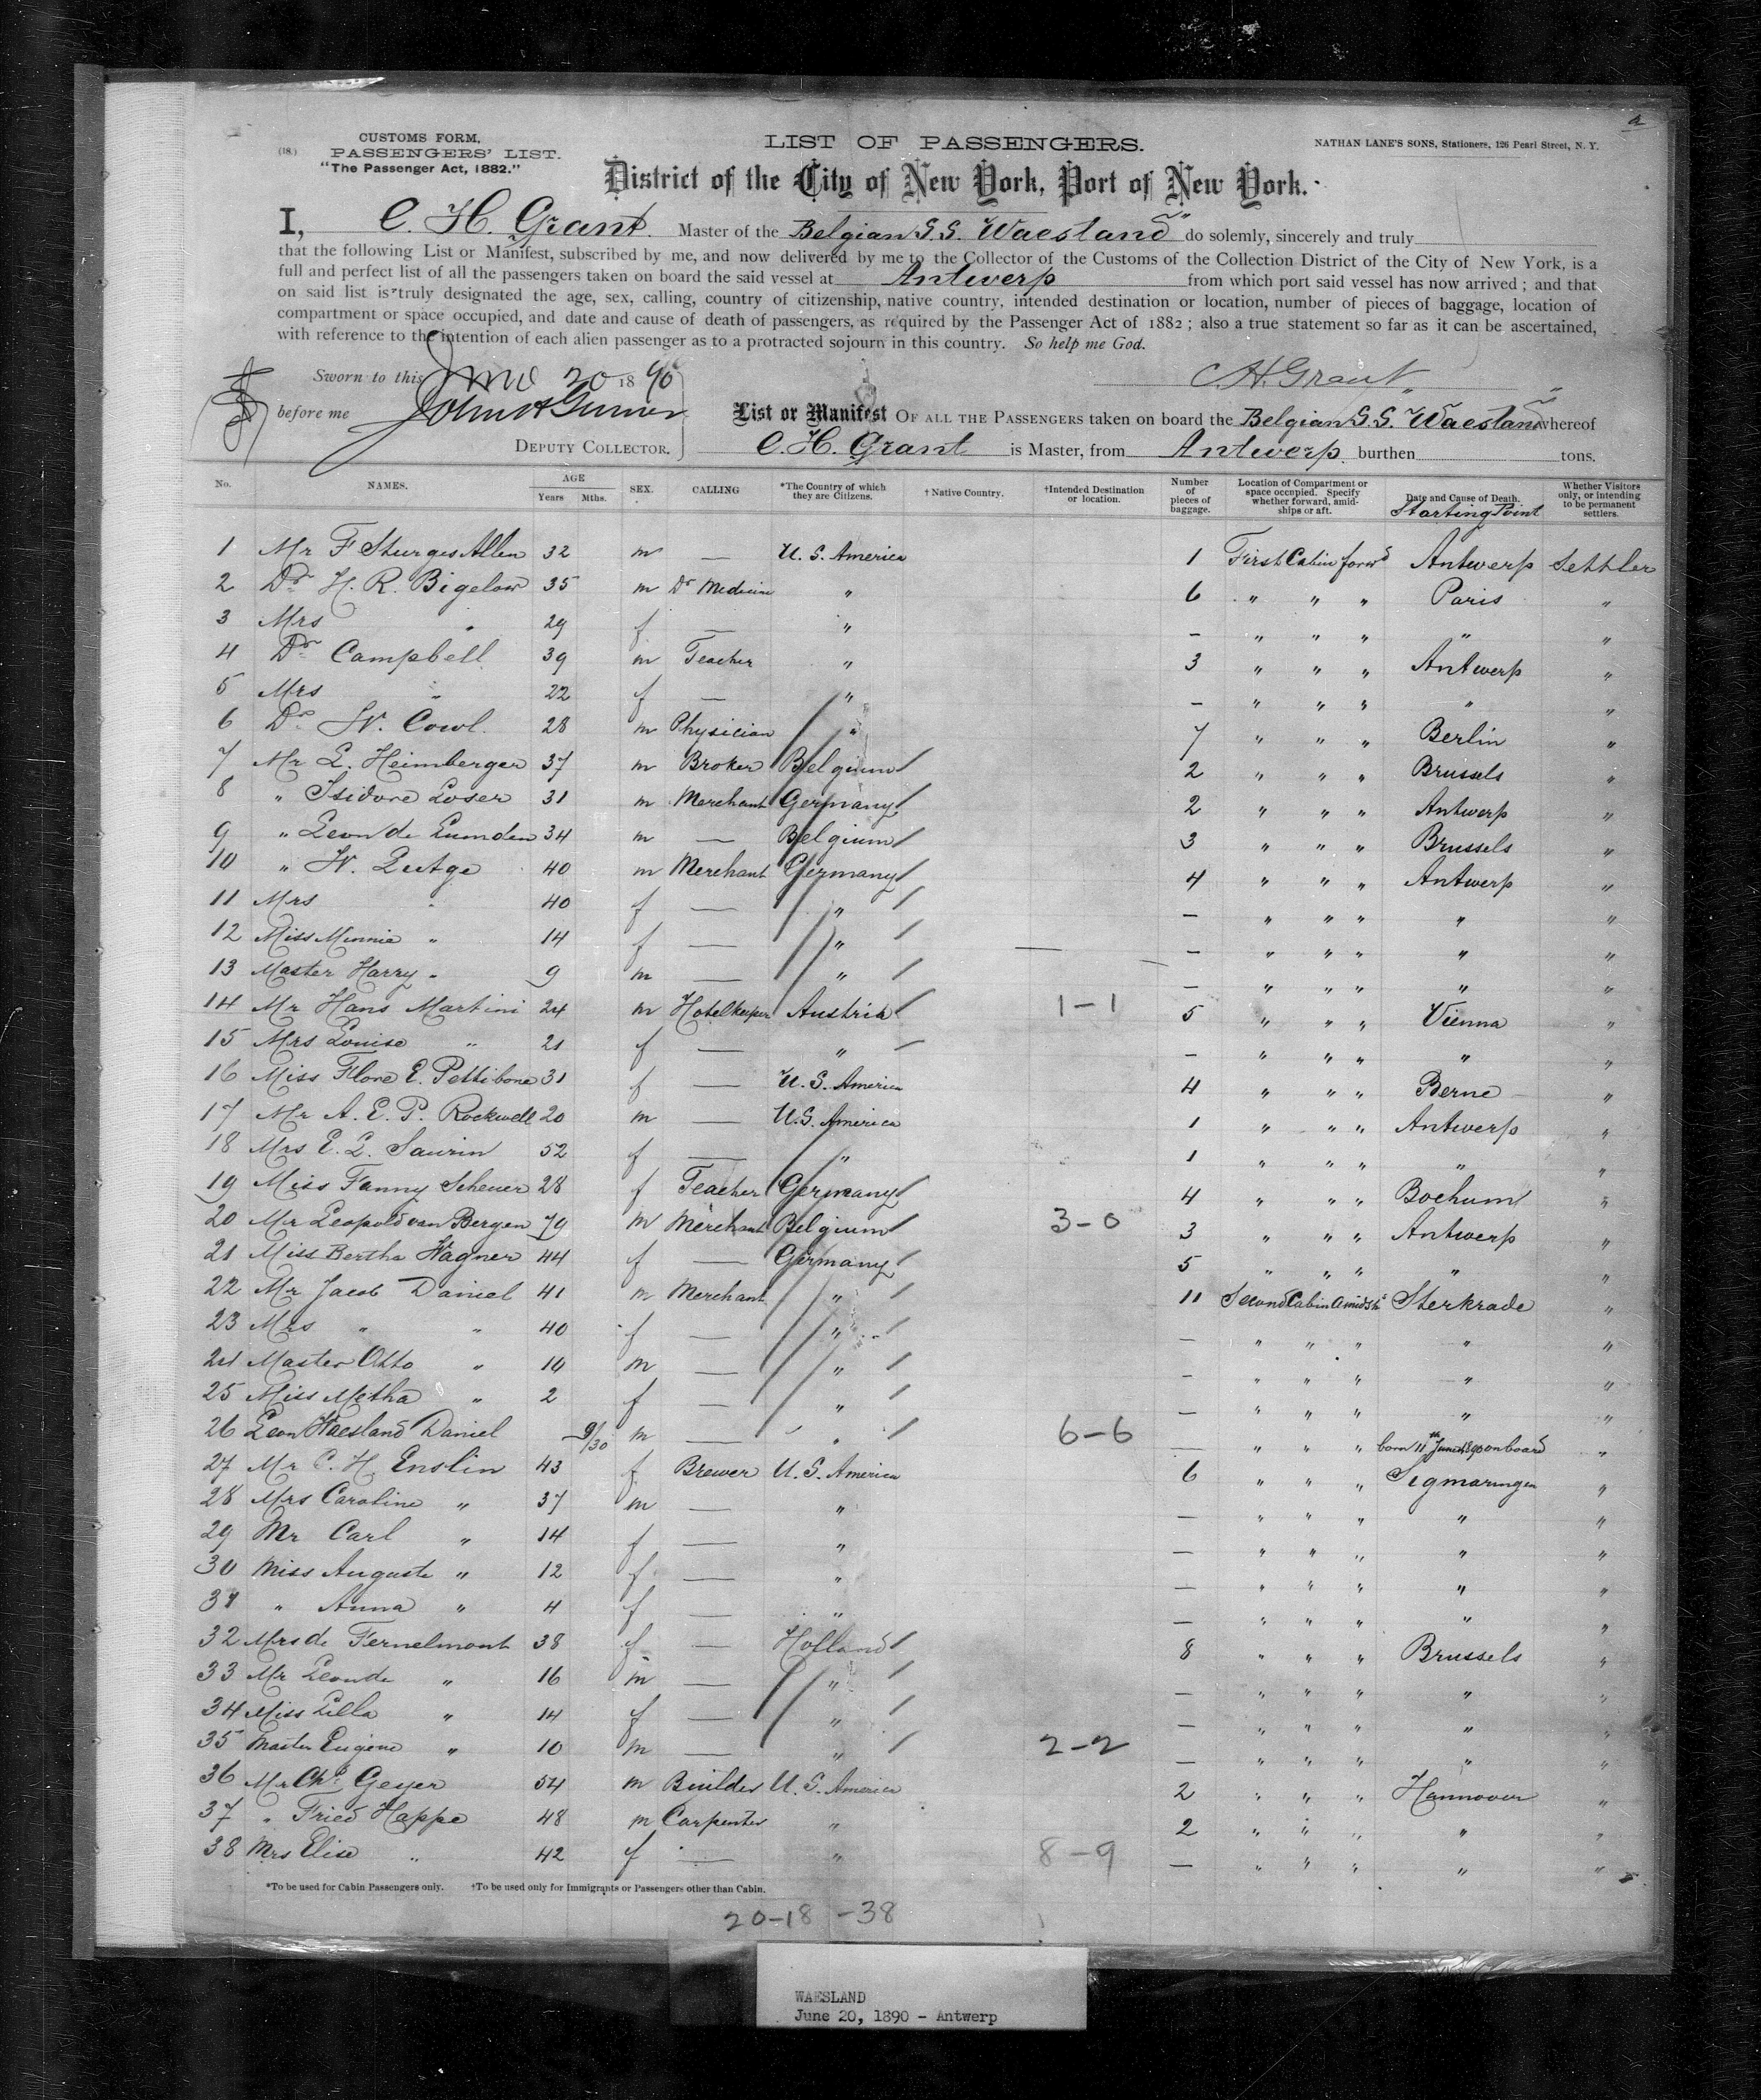 a
(18.)
CUSTOMS FORM,
PASSENGERS' LIST.
"The Passenger Act, 1882."
LIST OF PASSENGERS.
NATHAN LANE'S SONS, Stationers, 126 Pearl Street, N. Y.
District of the City of New York, Port of New York.
I, C. H. Grant. Master of the Belgian S.S. Waesland" do solemnly, sincerely and truly
that the following List or Manifest, subscribed by me, and now delivered by me to the Collector of the Customs of the Collection District of the City of New York, is a
full and perfect list of all the passengers taken on board the said vessel at Antwerp from which port said vessel has now arrived ; and that
on said list is truly designated the age, sex, calling, country of citizenship, native country, intended destination or location, number of pieces of baggage, location of
compartment or space occupied, and date and cause of death of passengers, as required by the Passenger Act of 1882 ; also a true statement so far as it can be ascertained,
with reference to the intention of each alien passenger as to a protracted sojourn in this country. So help me God.
Sworn to this June 20 1890
C.H. Grant
before me John A
DEPUTY COLLECTOR.
List or Manifest OF ALL THE PASSENGERS taken on board the Belgian S.S. "Waesland" whereof
C. H. Grant is Master, from Antwerp. burthen tons.
No. NAMES. AGE Years Mths. SEX. CALLING *The Country of which they are Citizens. † Native Country. †Intended Destination or location. Number of pieces of baggage. Location of Compartment or space occupied. Specify whether forward, amidships or aft. Date and Cause of Death. Starting Point Whether Visitors only, or intending to be permanent settlers.
1 Mr F Sturges Allen 32 m — U. S. America 1 First Cabin forwd Antwerp Settler
2 Dr H. R. Bigelow 35 m Dr Medicine " 6 " " " Paris "
3 Mrs " 29 f — " — " " " " "
4 Dr Campbell 39 m Teacher " 3 " " " Antwerp "
5 Mrs " 22 f — " — " " " " "
6 Dr W. Cowl. 28 m Physician " 7 " " " Berlin "
7 Mr L. Heimberger 37 m Broker Belgium 2 " " " Brussels "
8 " Isidore Loser 31 m Merchant Germany 2 " " " Antwerp "
9 " Leon de Lumden 34 m — Belgium 3 " " " Brussels "
10 " W. Lutge 40 m Merchant Germany 4 " " " Antwerp "
11 Mrs " 40 f — " — " " " " "
12 Miss Minnie " 14 f — " — — " " " " "
13 Master Harry " 9 m — " — " " " " "
14 Mr Hans Martini 24 m Hotelkeeper Austria 1-1 5 " " " Vienna "
15 Mrs Louise " 21 f — " — " " " " "
16 Miss Flore E. Pettibone 31 f — U. S. America 4 " " " Berne "
17 Mr A. E. P. Rockwell 20 m — U.S. America 1 " " " Antwerp "
18 Mrs E. L. Saurin 52 f — " 1 " " " " "
19 Miss Fanny Scheuer 28 f Teacher Germany 4 " " " Bochum "
20 Mr Leopold van Bergen 79 m Merchant Belgium 3-0 3 " " " Antwerp "
21 Miss Bertha Wagner 44 f — Germany 5 " " " " "
22 Mr Jacob Daniel 41 m Merchant " 11 Second Cabin Amidshs Sterkrade "
23 Mrs " " 40 f — " — " " " " "
24 Master Otto " 10 m — " — " " " " "
25 Miss Metha " 2 f — " — " " " " "
26 Leon Waesland Daniel 9/30 m — " 6-6 — " " " born 11th June 1890 on board "
27 Mr C. H. Enslin 43 f Brewer U. S. America 6 " " " Sigmaringen "
28 Mrs Caroline " 37 m — " — " " " " "
29 Mr Carl " 14 f — " — " " " " "
30 Miss Auguste " 12 f — " — " " " " "
31 " Anna " 4 f — " — " " " " "
32 Mrs de Fernelmont 38 f — Holland 8 " " " Brussels "
33 Mr Leon de " 16 m — " — " " " " "
34 Miss Lilla " 14 f — " — " " " " "
35 Master Eugene " 10 m — " 2-2 — " " " " "
36 Mr Chs Geyer 54 m Builder U. S. America 2 " " " Hannover "
37 " Fried Happe 48 m Carpenter " 2 " " " " "
38 Mrs Elise " 42 f — " 8-9 — " " " " "
*To be used for Cabin Passengers only. †To be used only for Immigrants or Passengers other than Cabin.
20-18 -38
WAESLAND
June 20, 1890 - Antwerp